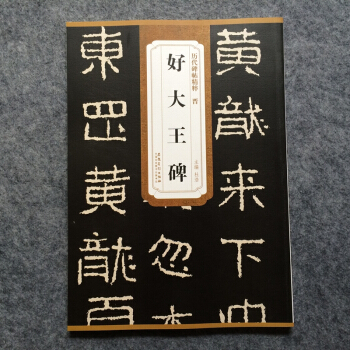 历代碑帖精粹 晋
好大王碑
黄龍来下
忽本
東罡黄龍